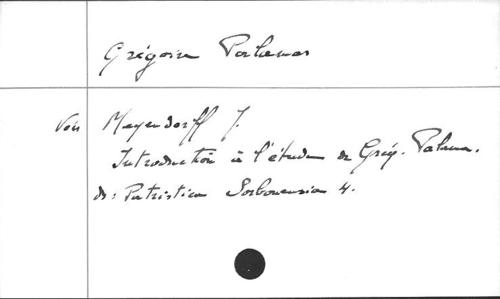 Grégoire Palamas
Voir Meyendorff J.
Introduction à l'étude de Grég. Palamas.
ds: Patristica Sorbonensia 4.